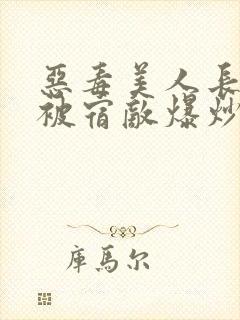 惡毒美人長
被宿敵爆炒
庫馬尔